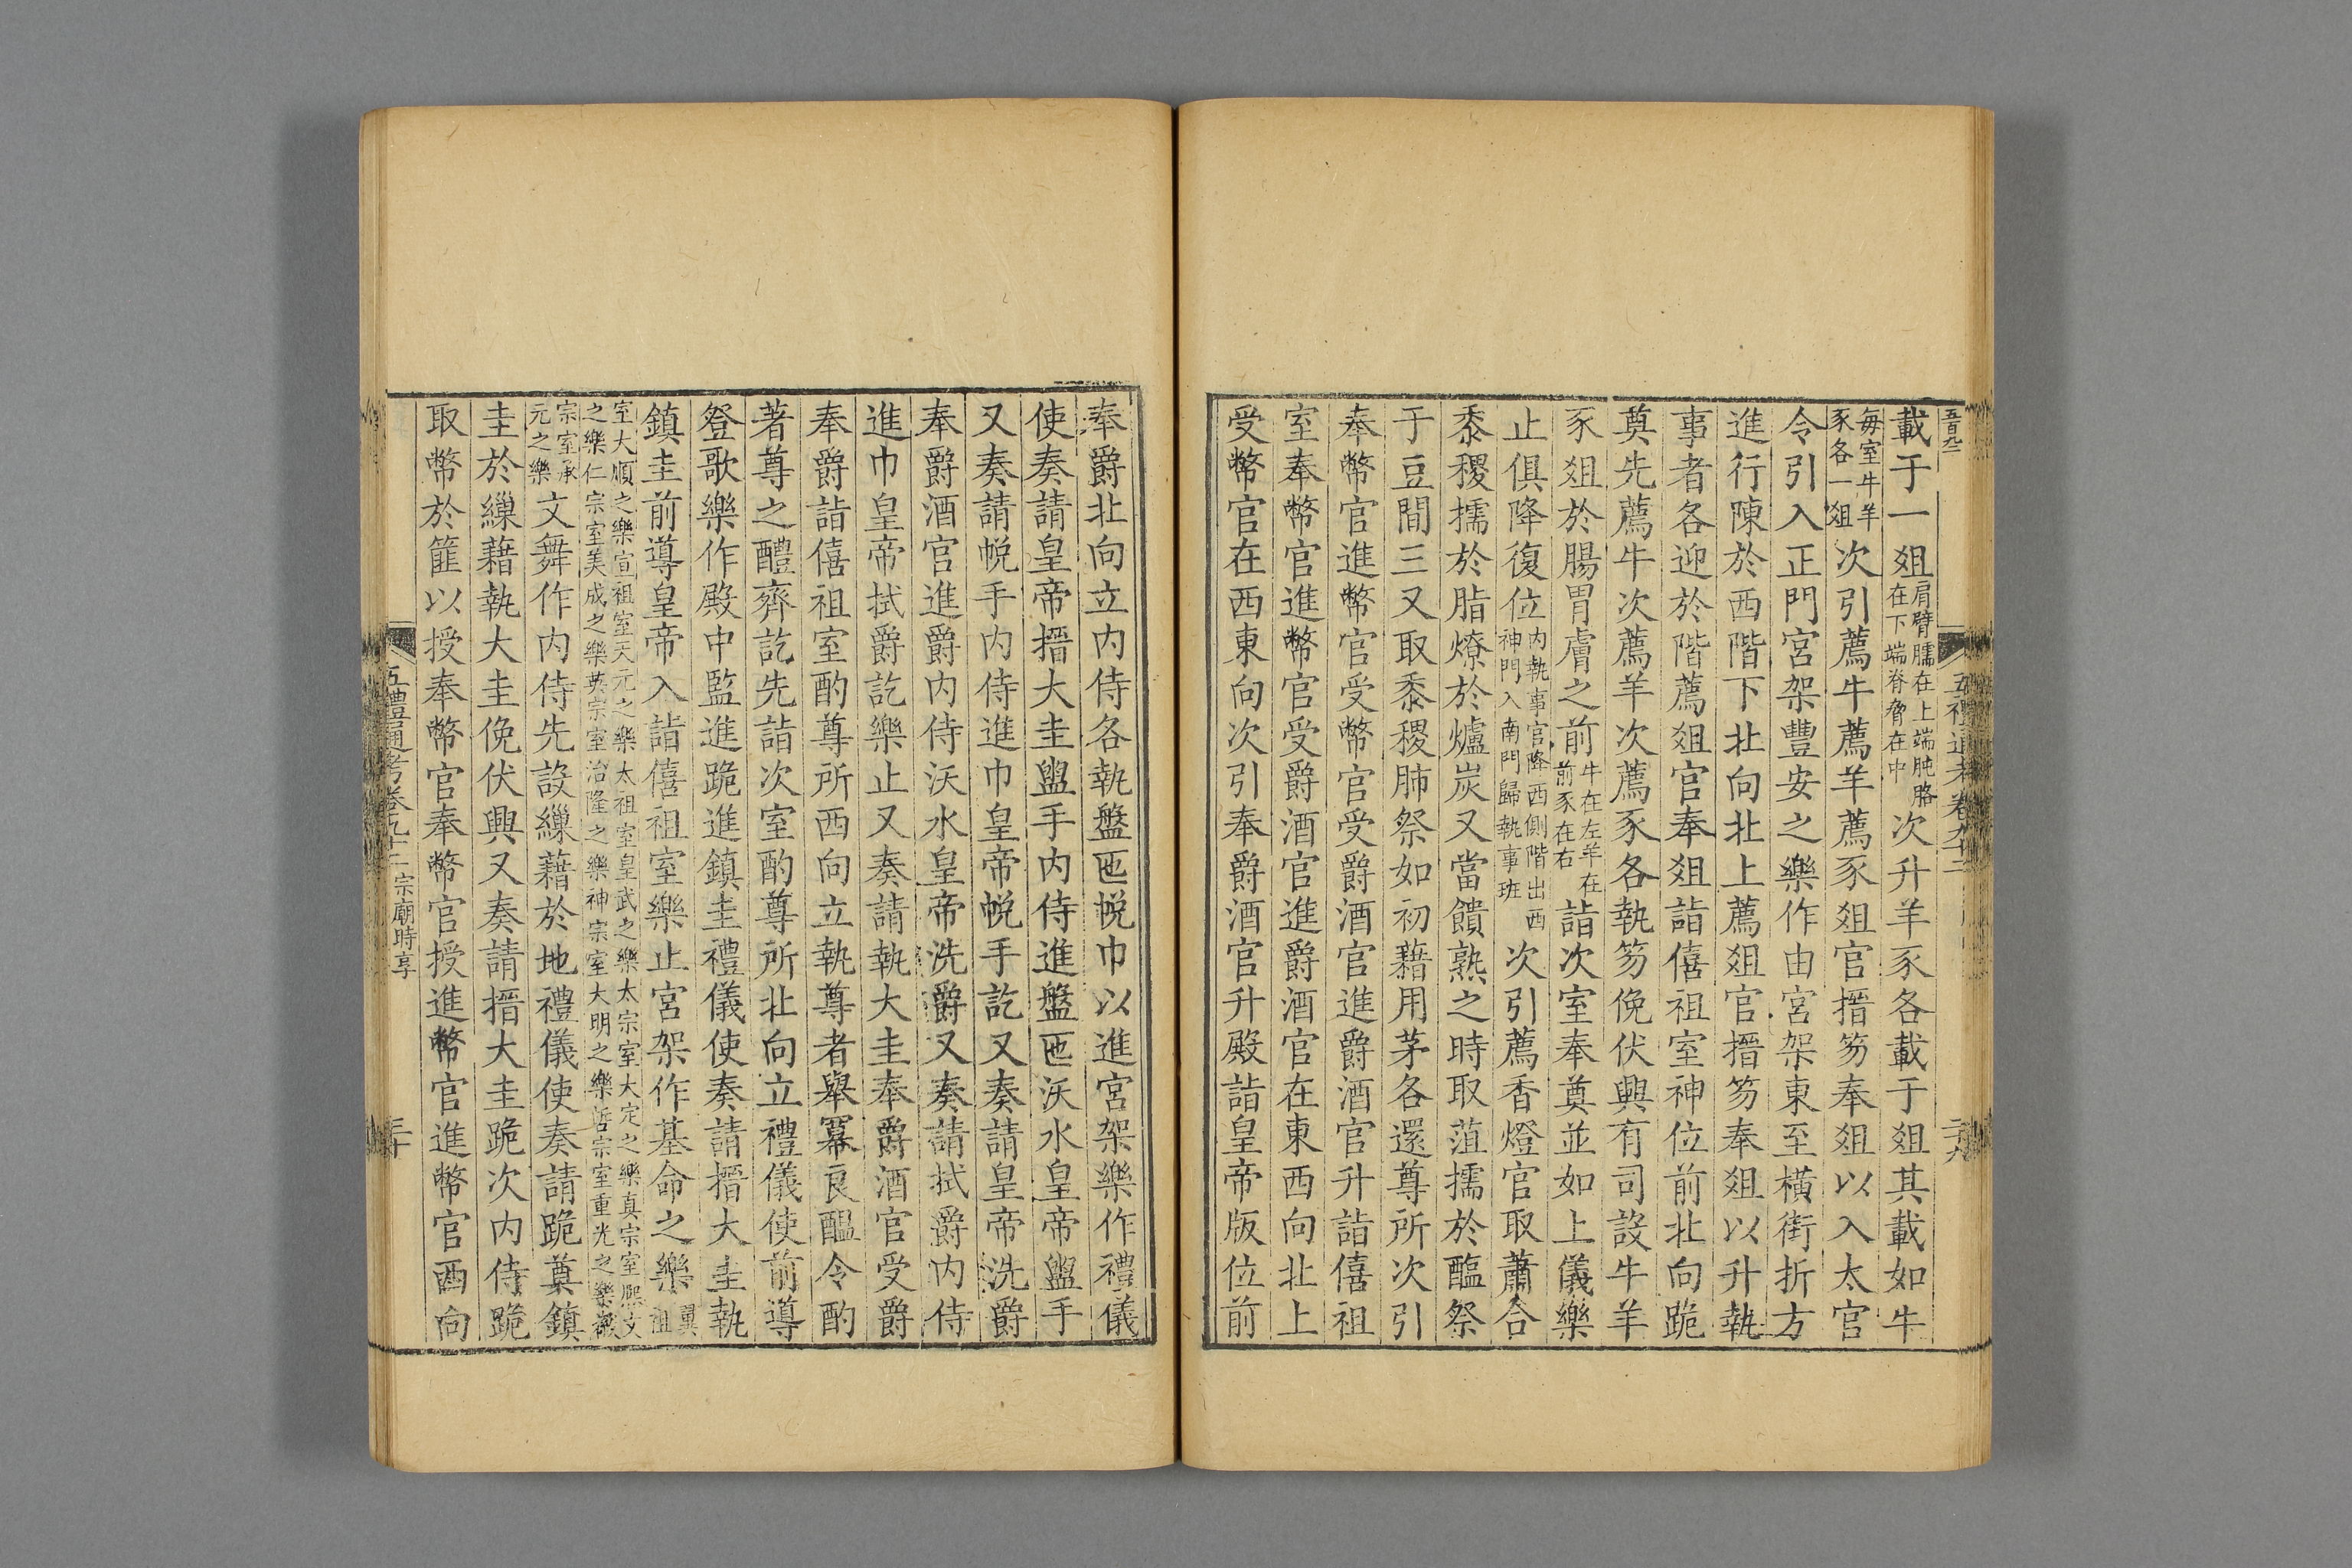 載于一俎肩臂臑在上端肫胳在下端脊脅在中次升羊豕各載于俎其載如牛
每室牛羊豕各一俎次引薦牛薦羊薦豕俎官搢笏奉俎以入太官
令引入正門宮架豐安之樂作由宮架東至橫街折方
進行陳於西階下北向北上薦俎官搢笏奉俎以升執
事者各迎於階薦俎官奉俎詣僖祖室神位前北向跪
奠先薦牛次薦羊次薦豕各執笏俛伏興有司設牛羊
豕俎於腸胃膚之前牛在左羊在前豕在右詣次室奉奠並如上儀樂
止俱降復位內執事官降西側階出西神門入南門歸執事班次引薦香燈官取蕭合
黍稷擩於脂燎於爐炭又當饋熟之時取菹擩於醢祭
于豆間三又取黍稷肺祭如初藉用茅各還尊所次引
奉幣官進幣官受幣官受爵酒官進爵酒官升詣僖祖
室奉幣官進幣官受爵酒官進爵酒官在東西向北上
受幣官在西東向次引奉爵酒官升殿詣皇帝版位前
奉爵北向立內侍各執盤匜帨巾以進宮架樂作禮儀
使奏請皇帝搢大圭盥手內侍進盤匜沃水皇帝盥手
又奏請帨手內侍進巾皇帝帨手訖又奏請皇帝洗爵
奉爵酒官進爵內侍沃水皇帝洗爵又奏請拭爵內侍
進巾皇帝拭爵訖樂止又奏請執大圭奉爵酒官受爵
奉爵詣僖祖室酌尊所西向立執尊者舉冪良醞令酌
著尊之醴齊訖先詣次室酌尊所北向立禮儀使前導
登歌樂作殿中監進跪進鎮圭禮儀使奏請搢大圭執
鎮圭前導皇帝入詣僖祖室樂止宮架作基命之樂翼祖
室大順之樂宣祖室天元之樂太祖室皇武之樂太宗室大定之樂真宗室熙文之樂仁宗室美成之樂英宗室治隆之樂神宗室大明之樂哲宗室重光之樂徽
宗室承元之樂文舞作內侍先設繅藉於地禮儀使奏請跪奠鎮
圭於繅藉執大圭俛伏興又奏請搢大圭跪次內侍跪
取幣於篚以授奉幣官奉幣官授進幣官進幣官西向
五禮通考卷九十二 宗廟時享
三十